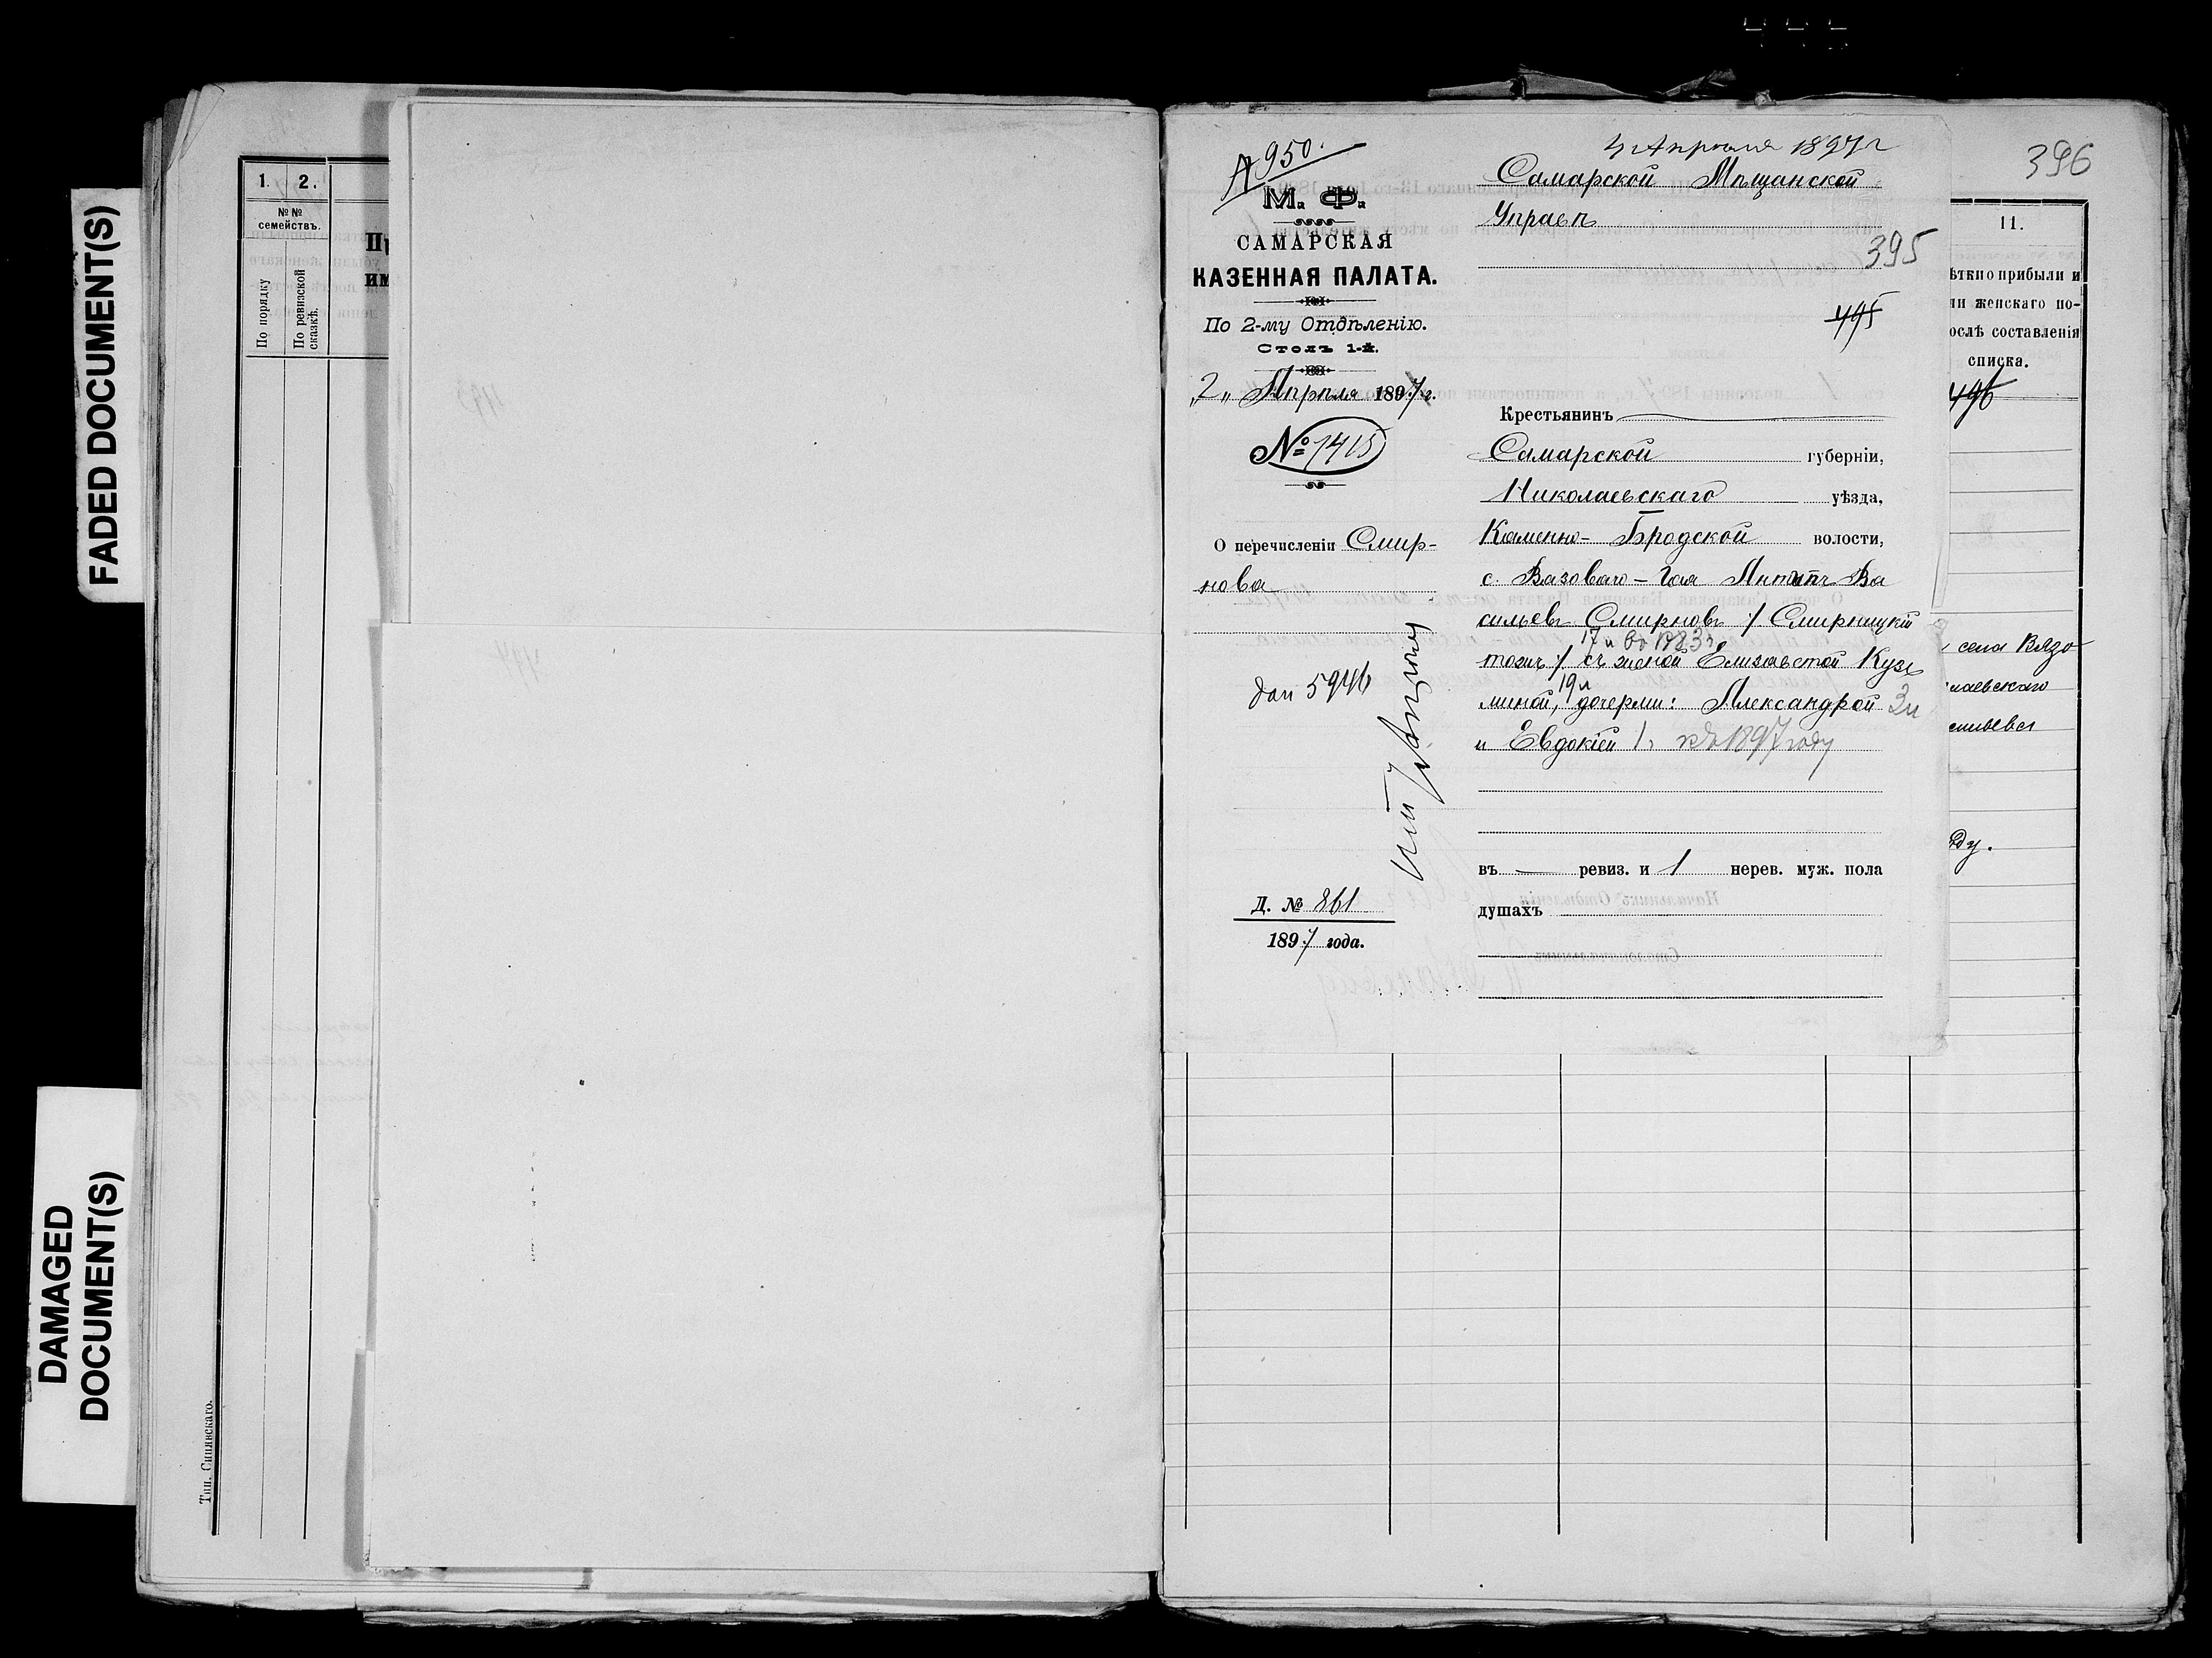 FADED DOCUMENT(S)
DAMAGED
DOCUMENT(S)
1. 2.
№ №
семействъ.
По порядку
По ревизской
сказкѣ.
Тип. Сцилвскаго.
№ 950.
М. Ф.
САМАРСКАЯ
КАЗЕННАЯ ПАЛАТА.
По 2-му Отдѣленію.
Столъ 1-й.
„2„ Апрѣля 1897 г.
№ 1415
О перечисленіи Смир-
нова
5946
Д. № 861
1897 года.
4 Апрѣля 1897 г
Самарской Мѣщанской
Управѣ
395
495
Крестьянинъ
Самарской губерніи,
Николаевскаго уѣзда,
Каменно-Бродской волости,
с. Вязоваго-Гая Антипъ Ва
сильевъ Смирновъ /Смирницкій
тожъ/ съ женой Елизаветой Кузь
19 л
миной, дочерми: Александрой 3 л
и Евдокіей 1 г. къ 1897 году
въ — ревиз. и 1 нерев. муж. пола
душахъ
396
11.
ѣтки о прибыли и
ли женскаго по-
ослѣ составленія
списка.
496
села Вязо
лаевскаго
сильевъ
оду.